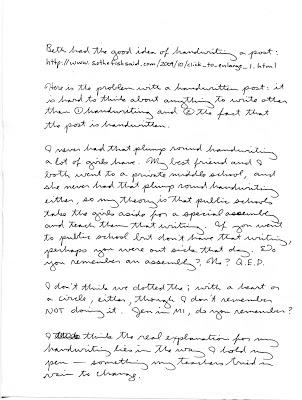 Beth had the good idea of handwriting a post:
http://www.sothefishsaid.com/2009/10/click_to_enlarge_1.html
Here is the problem with a handwritten post: it
is hard to think about anything to write other
than ① handwriting and ② the fact that
the post is handwritten.
I never had that plump round handwriting
a lot of girls have. My best friend and I
both went to a private middle school, and
she never had that plump round handwriting
either, so my theory is that public schools
take the girls aside for a special assembly
and teach them that writing. If you went
to public school but don't have that writing,
perhaps you were out sick that day. Do
you remember an assembly? No? Q.E.D.
I don't think we dotted the i with a heart or
a circle, either, though I don't remember
NOT doing it. Jen in MI, do you remember?
I think the real explanation for my
handwriting lies in the way I hold my
pen — something my teachers tried in
vain to change.